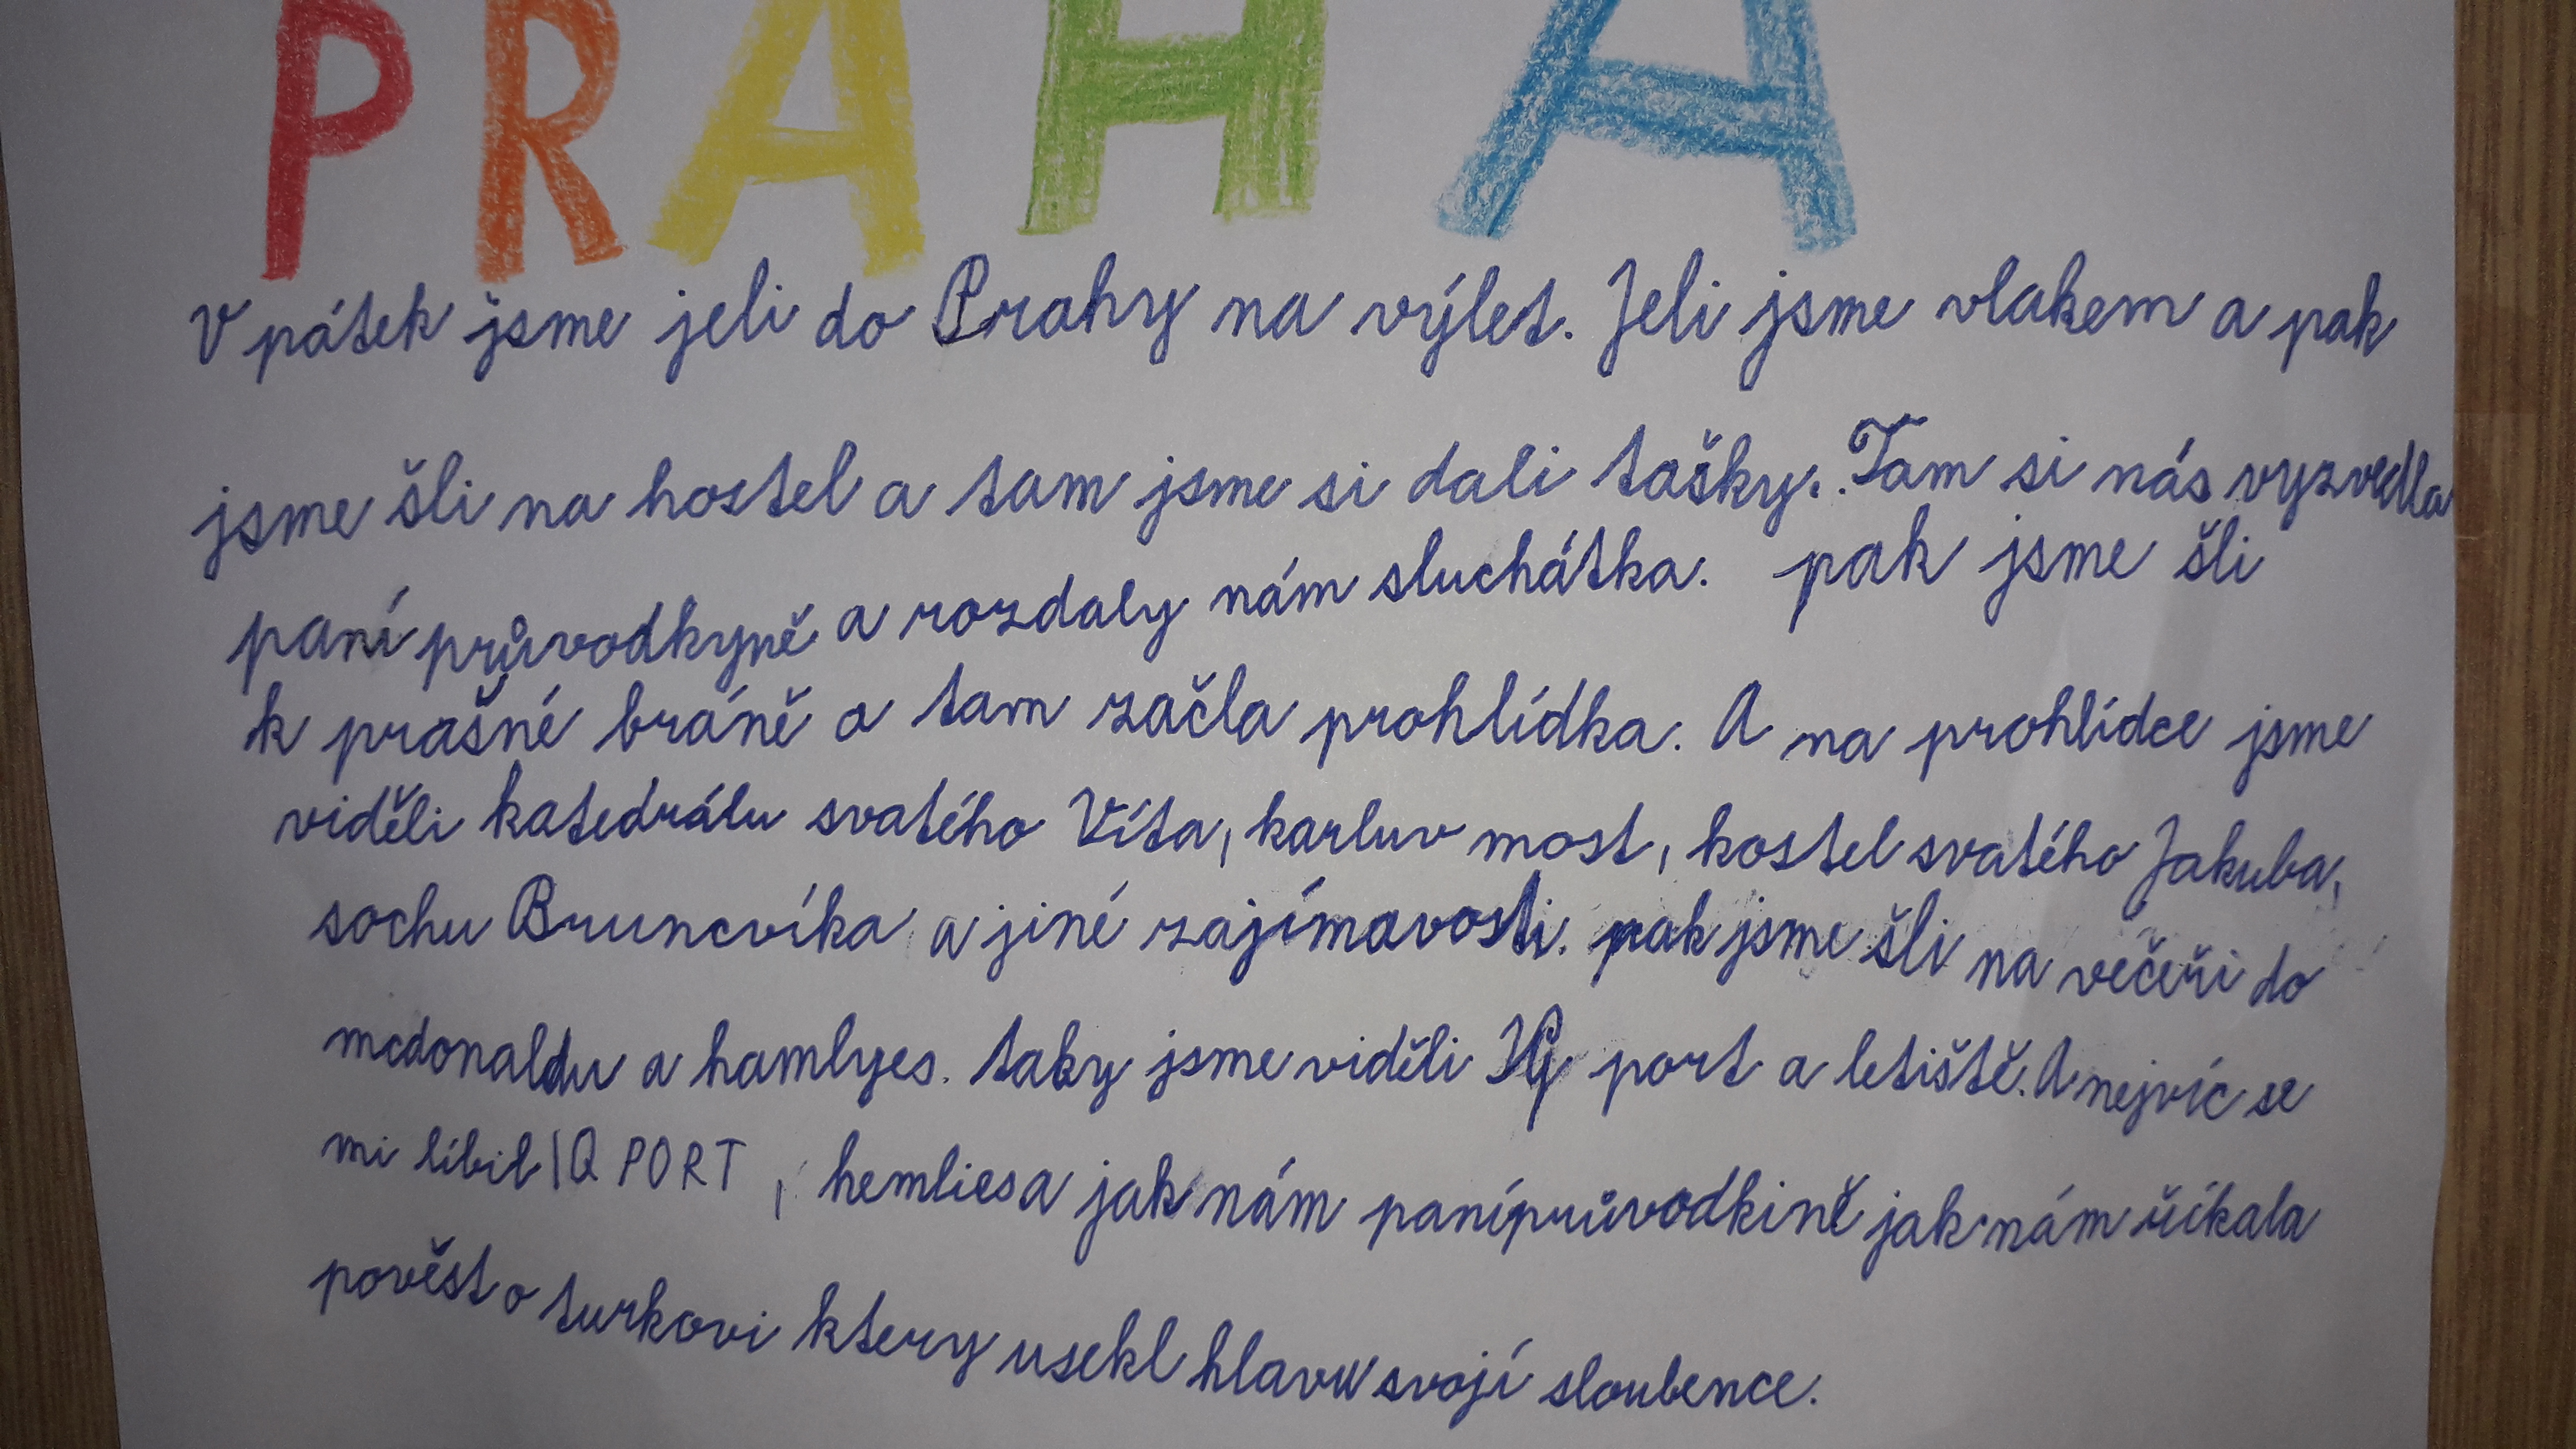 PRAHA
V pátek jsme jeli do Prahy na výlet. Jeli jsme vlakem a pak
jsme šli na hostel a tam jsme si dali tašky. Tam si nás vyzvedla
paní průvodkyně a rozdaly nám sluchátka. pak jsme šli
k prašné bráně a tam začla prohlídka. A na prohlídce jsme
viděli katedrálu svatého Víta, karluv most, kostel svatého Jakuba,
sochu Bruncvíka a jiné zajímavosti. pak jsme šli na večeři do
mcdonaldu a hamlyes. taky jsme viděli IQ port a letiště. A nejvíc se
mi líbil IQ PORT, hemlies a jak nám paní průvodkině jak nám říkala
pověst o turkovi ktery usekl hlavu svojí sloubence.